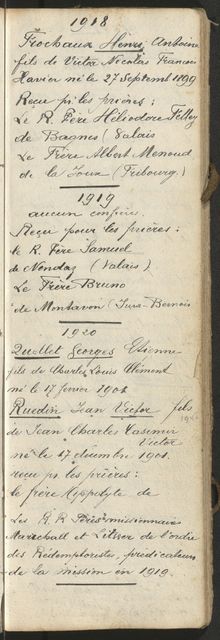 1918
Frochaux Henri, Antoine
fils de Victor Nicolas François
Xavier né le 27 Septembre 1899
Reçu pr. les prières :
Le R. Père Héliodore Fellay
de Bagnes (Valais
Le Frère Albert Menoud
de la Joux (Fribourg.)
1919
aucun confirm.
Reçu pour les prières :
le R. Père Samuel
de Nendaz (Valais)
Le Frère Bruno
de Montavon (Jura-Bernois
1920
Quellet Georges Etienne
fils de Charles Louis Clément
né le 17 février 1901
Ruedin Jean Victor fils
de Jean Charles Casimir
Victor
né le 17 décembre 1901.
reçu ps les prières :
le frère Hyppolyte de
Les R. R Pères missionnaires
Maréchall et de l'ordre
des Rédemptoristes, prédicateurs
de la mission en 1919.